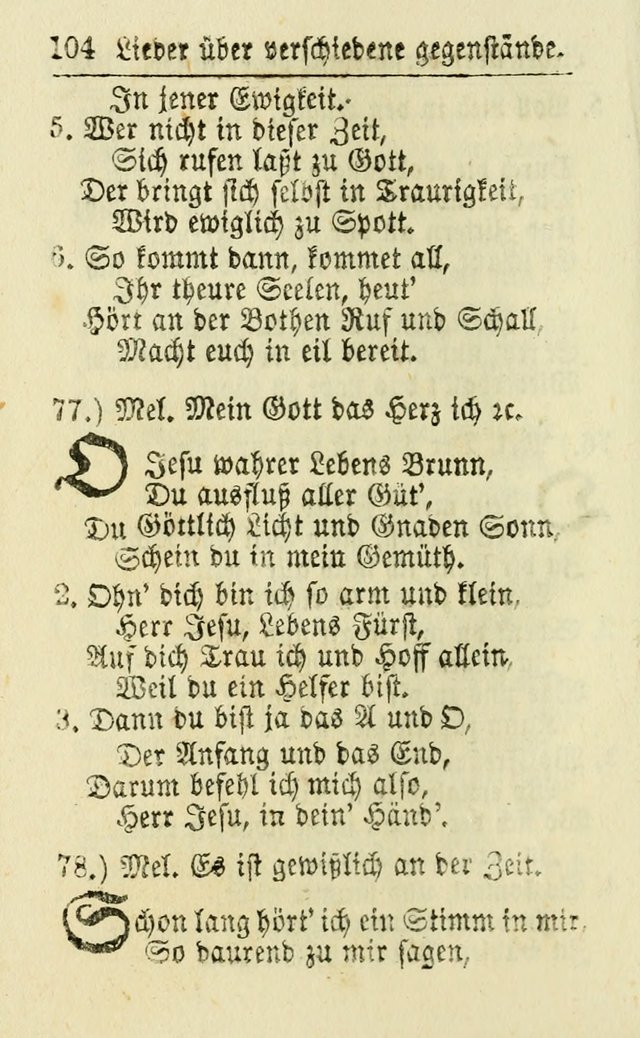 104 Lieder über verschiedene gegenstände.
In jener Ewigkeit.
5. Wer nicht in dieser Zeit,
Sich rufen laßt zu Gott,
Der bringt sich selbst in Traurigkeit,
Wird ewiglich zu Spott.
6. So kommt dann, kommet all,
Ihr theure Seelen, heut'
Hört an der Bothen Ruf und Schall,
Macht euch in eil bereit.
77.) Mel. Mein Gott das Herz ich ꝛc.
O Jesu wahrer Lebens Brunn,
Du ausfluß aller Güt',
Du Göttlich Licht und Gnaden Sonn,
Schein du in mein Gemüth.
2. Ohn' dich bin ich so arm und klein,
Herr Jesu, Lebens Fürst,
Auf dich Trau ich und Hoff allein,
Weil du ein Helfer bist.
3. Dann du bist ja das A und O,
Der Anfang und das End,
Darum befehl ich mich also,
Herr Jesu, in dein' Händ'.
78.) Mel. Es ist gewißlich an der Zeit.
Schon lang hört' ich ein Stimm in mir,
So daurend zu mir sagen,